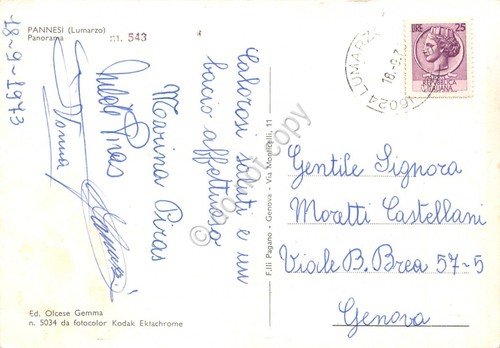 PANNESI (Lumarzo)
Panorama
m. 543
18-9-1973
Calorosi saluti e un
bacio affettuoso
Marina Piras
Piras
Nonna
Ed. Olcese Gemma
n. 5034 da fotocolor Kodak Ektachrome
F.lli Pagano - Genova - Via Monticelli, 11
16024 LUMARZO
18.-9.7
LIRE 25
REPUBBLICA
ITALIANA
Gentile Signora
Moretti Castellani
Viale B. Brea 57-5
Genova
not copy